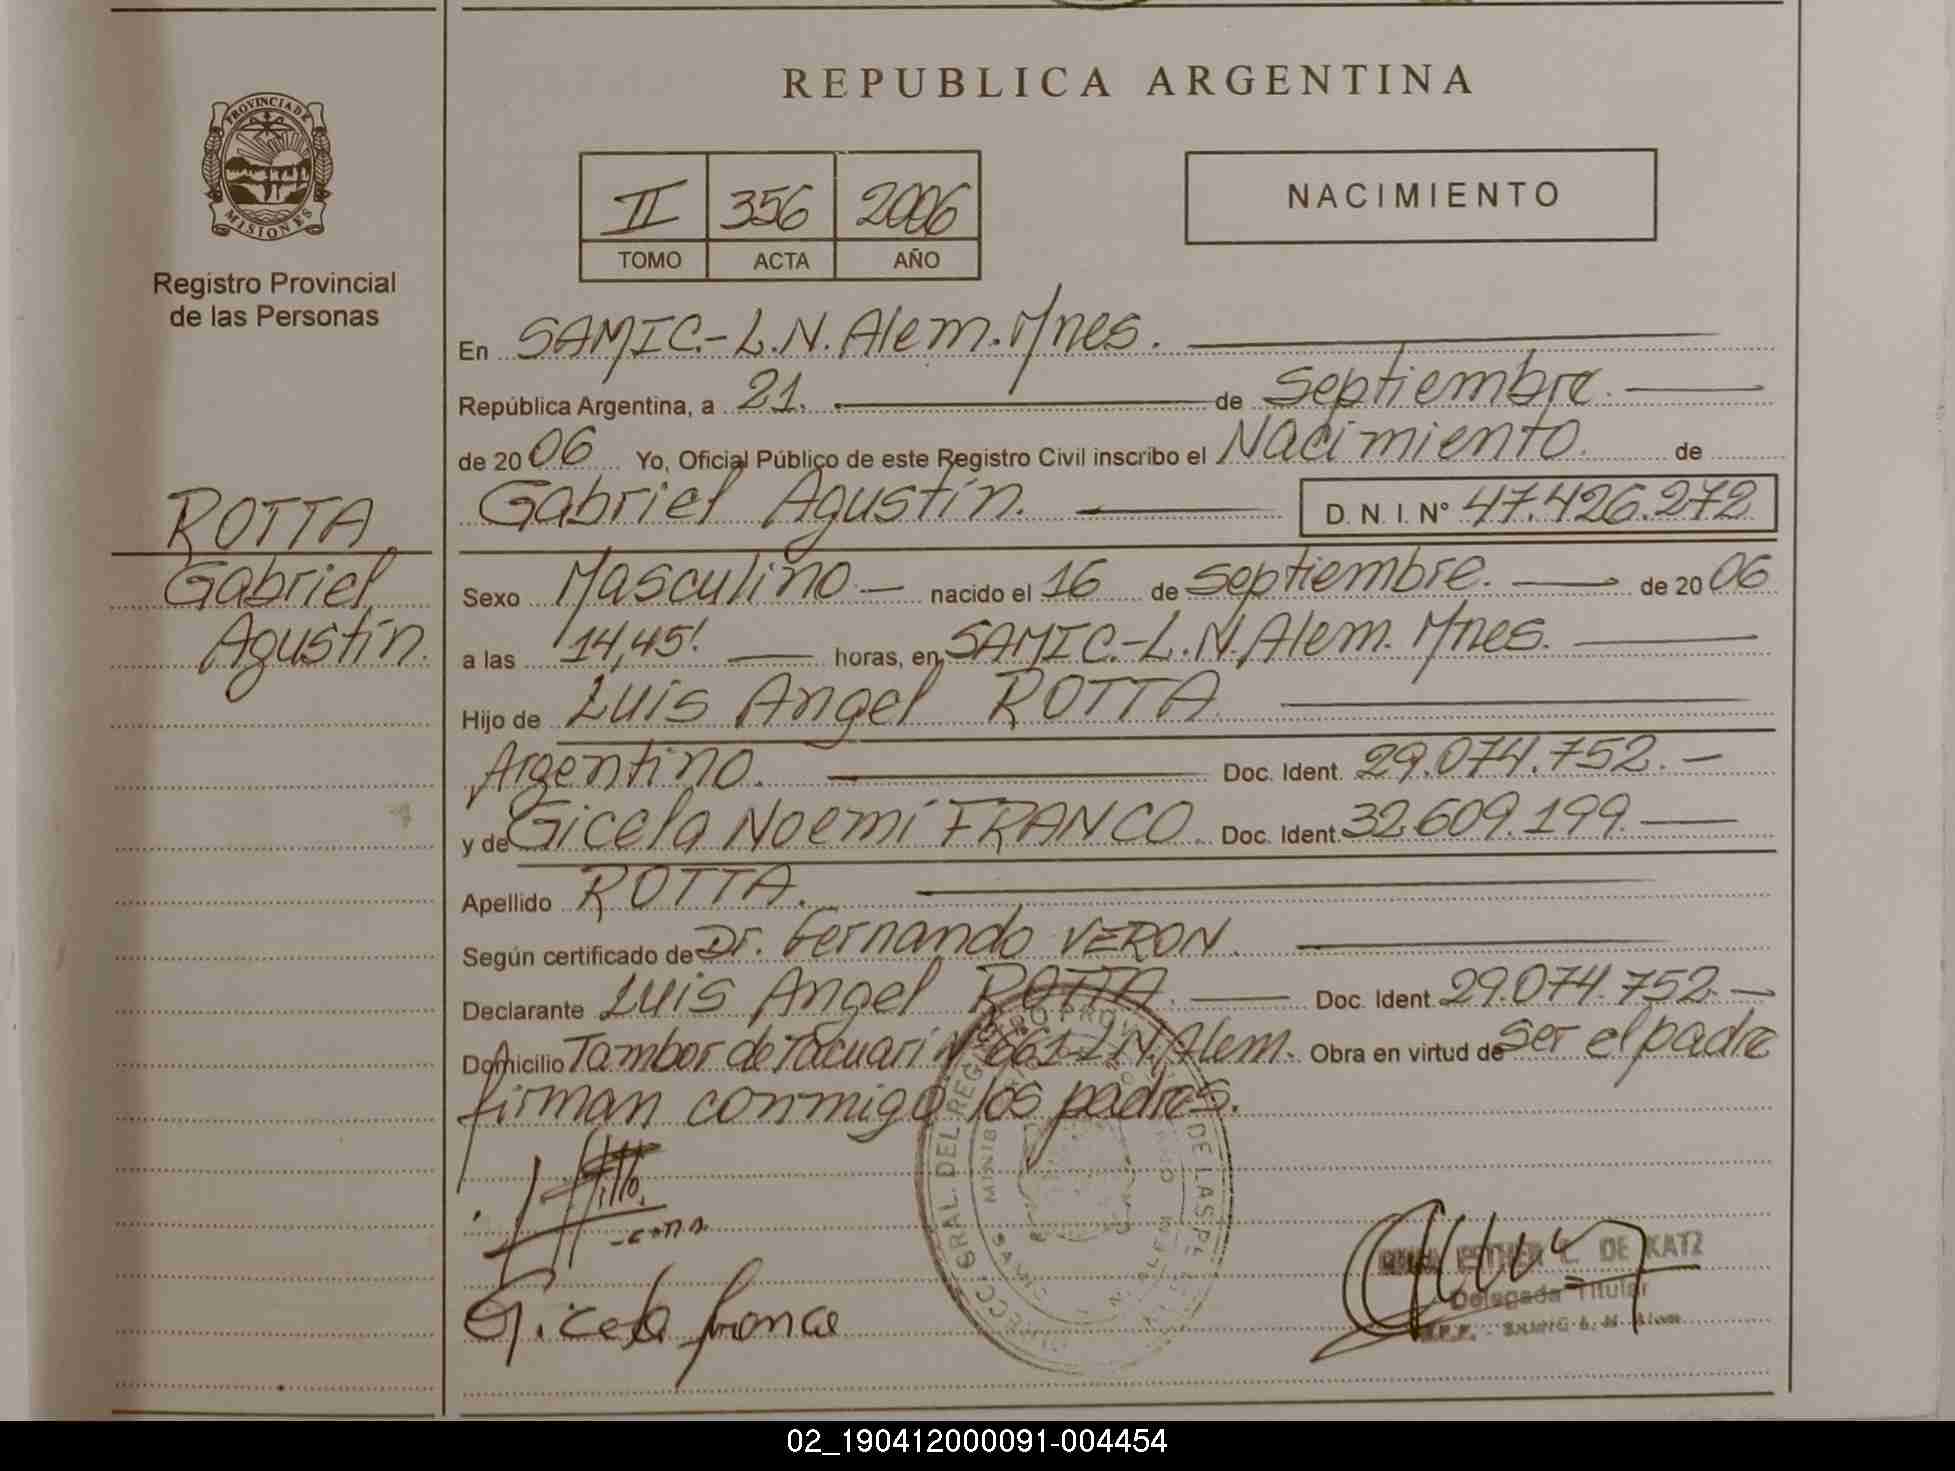 REPUBLICA ARGENTINA
PROVINCIA DE
MISIONES
Registro Provincial
de las Personas
II 356 2006
TOMO ACTA AÑO
NACIMIENTO
En SAMIC.-L.N.Alem.Mnes.
República Argentina, a 21. de Septiembre.
de 2006 Yo, Oficial Público de este Registro Civil inscribo el Nacimiento. de
Gabriel Agustín. D.N.I. N° 47.426.272
ROTTA
Gabriel
Agustín.
Sexo Masculino.- nacido el 16 de septiembre. de 2006
a las 14,45'. horas, en SAMIC.-L.N.Alem. Mnes.
Hijo de Luis Angel ROTTA.
Argentino. Doc. Ident. 29.074.752.-
y de Gicela Noemí FRANCO. Doc. Ident. 32.609.199.
Apellido ROTTA.
Según certificado de Dr. Fernando VERON.
Declarante Luis Angel ROTTA. Doc. Ident. 29.074.752.-
Domicilio Tambor de Tacuarí N° 661-L.N.Alem. Obra en virtud de ser el padre
firman conmigo los padres.
Gicela franco
ESTHER L. DE KATZ
Delegada Titular
02_190412000091-004454